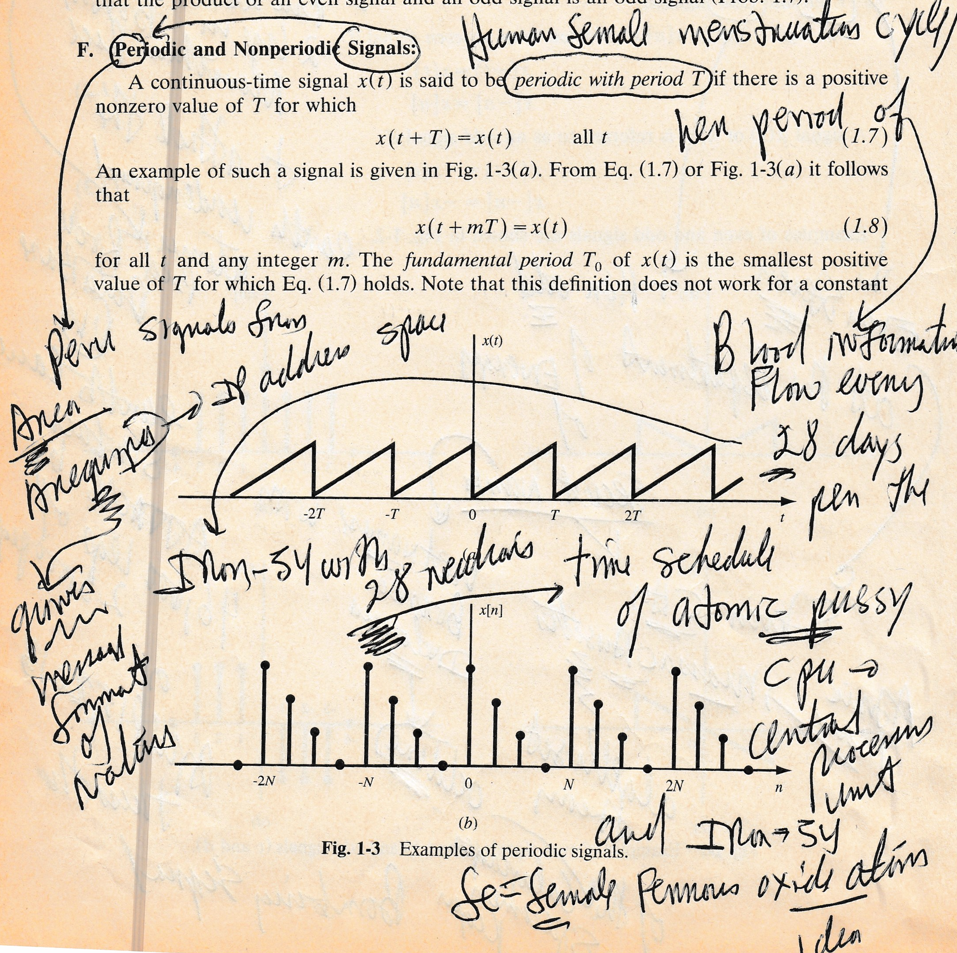 that the product of an even signal and an odd signal is an odd signal (Prob. 1.7).
Human female menstruation cycle
F. Periodic and Nonperiodic Signals:
A continuous-time signal x(t) is said to be periodic with period T if there is a positive
nonzero value of T for which
per period of
x(t + T) = x(t) all t (1.7)
An example of such a signal is given in Fig. 1-3(a). From Eq. (1.7) or Fig. 1-3(a) it follows
that
x(t + mT) = x(t) (1.8)
for all t and any integer m. The fundamental period T₀ of x(t) is the smallest positive
value of T for which Eq. (1.7) holds. Note that this definition does not work for a constant
Peru signals from
IP address space
x(t)
Blood information
Flow every
28 days
per the
Area
Arequipa
-2T -T 0 T 2T t
Iron-54 with
28 neutrons
time schedule
of atomic pussy
x[n]
CPU →
central
unit
format
of
-2N -N 0 N 2N n
(b)
and Iron → 54
Fig. 1-3 Examples of periodic signals.
Fe = Female Ferrous oxide
idea